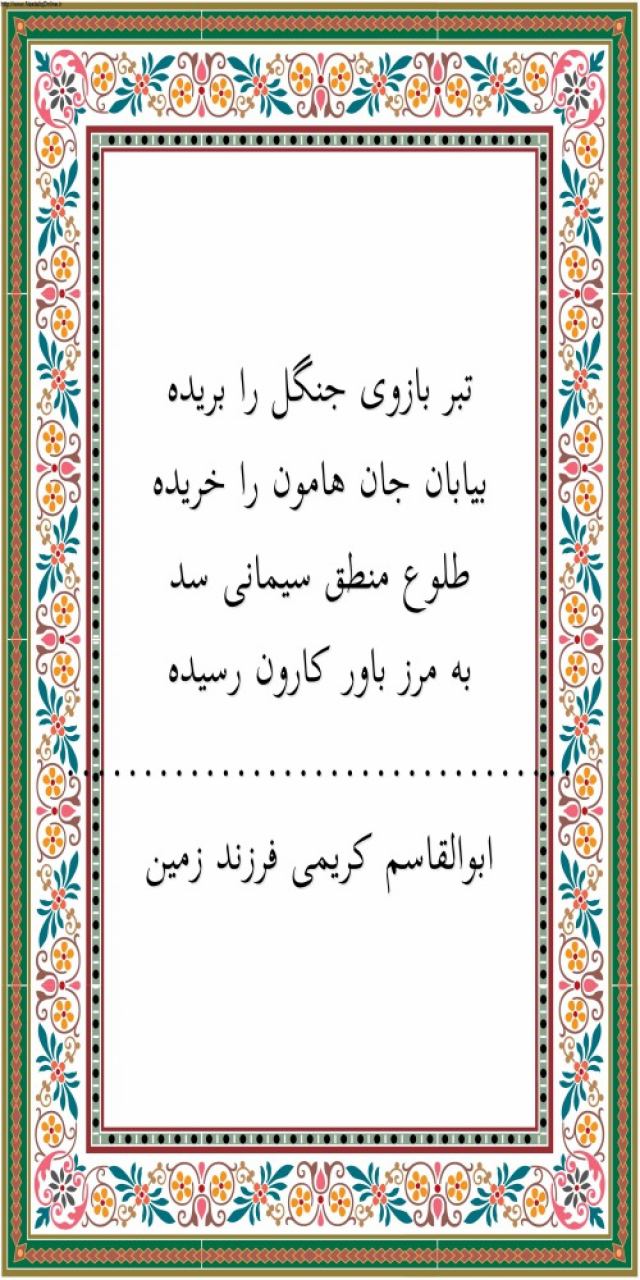 http://www.NastaliqOnline.ir
تبر بازوی جنگل را بریده
بیابان جان هامون را خریده
طلوع منطق سیمانی سد
به مرز باور کارون رسیده
................................
ابوالقاسم کریمی فرزند زمین